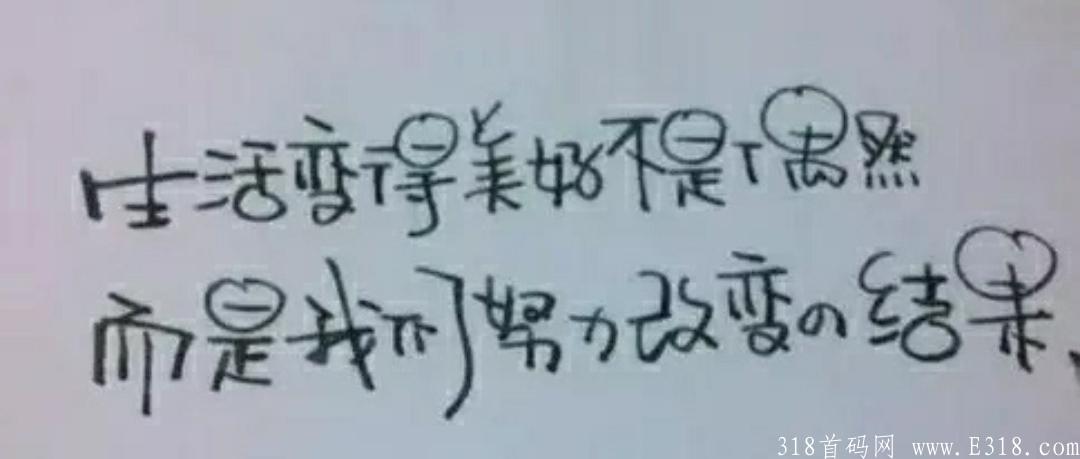 生活变得美好不是偶然
而是我们努力改变の结果、
318首码网 www.E318.com